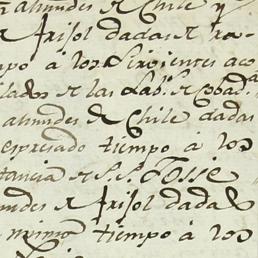 almudes de Chile y
de frisol dadas de ra-
po á los Sirvientes aco
lados de las Lab.s de Cobad.a
almudes de Chile dadas
espresado tiempo á los
tancia de S.S. Josse
mudes de frisol dadas
mismo tiempo á los